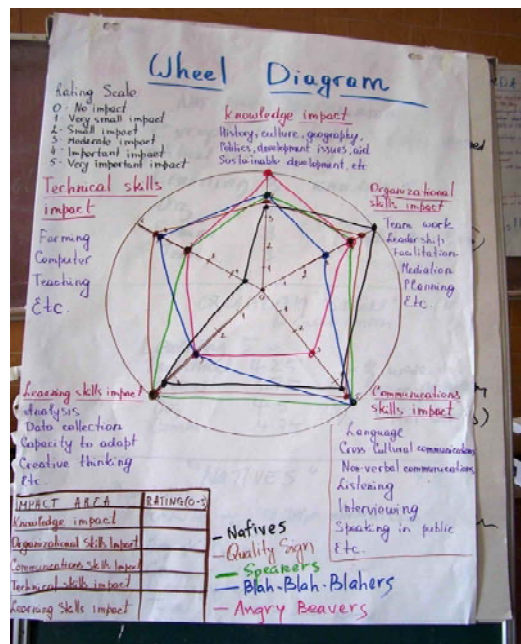 Wheel Diagram
Rating Scale
0 - No impact
1 - Very small impact
2 - Small impact
3 - Moderate impact
4 - Important impact
5 - Very important impact
Knowledge impact
History, culture, geography,
Politics, development issues, aid
Sustainable development, etc
Technical skills
impact
Farming
Computer
Teaching
Etc.
Organizational
skills impact
Team work
Leadership
Facilitation
Mediation
Planning
Etc.
Learning skills impact
Analysis
Data collection
Capacity to adapt
Creative thinking
Etc.
Communications
skills impact
Language
Cross Cultural communications
Non-verbal communications
Listening
Interviewing
Speaking in public
Etc.
IMPACT AREA RATING(0-5)
Knowledge impact
Organizational Skills Impact
Communications Skills Impact
Technical skills impact
Learning Skills impact
- Natives
- Quality Sign
- Speakers
- Blah-Blah-Blahers
- Angry Beavers